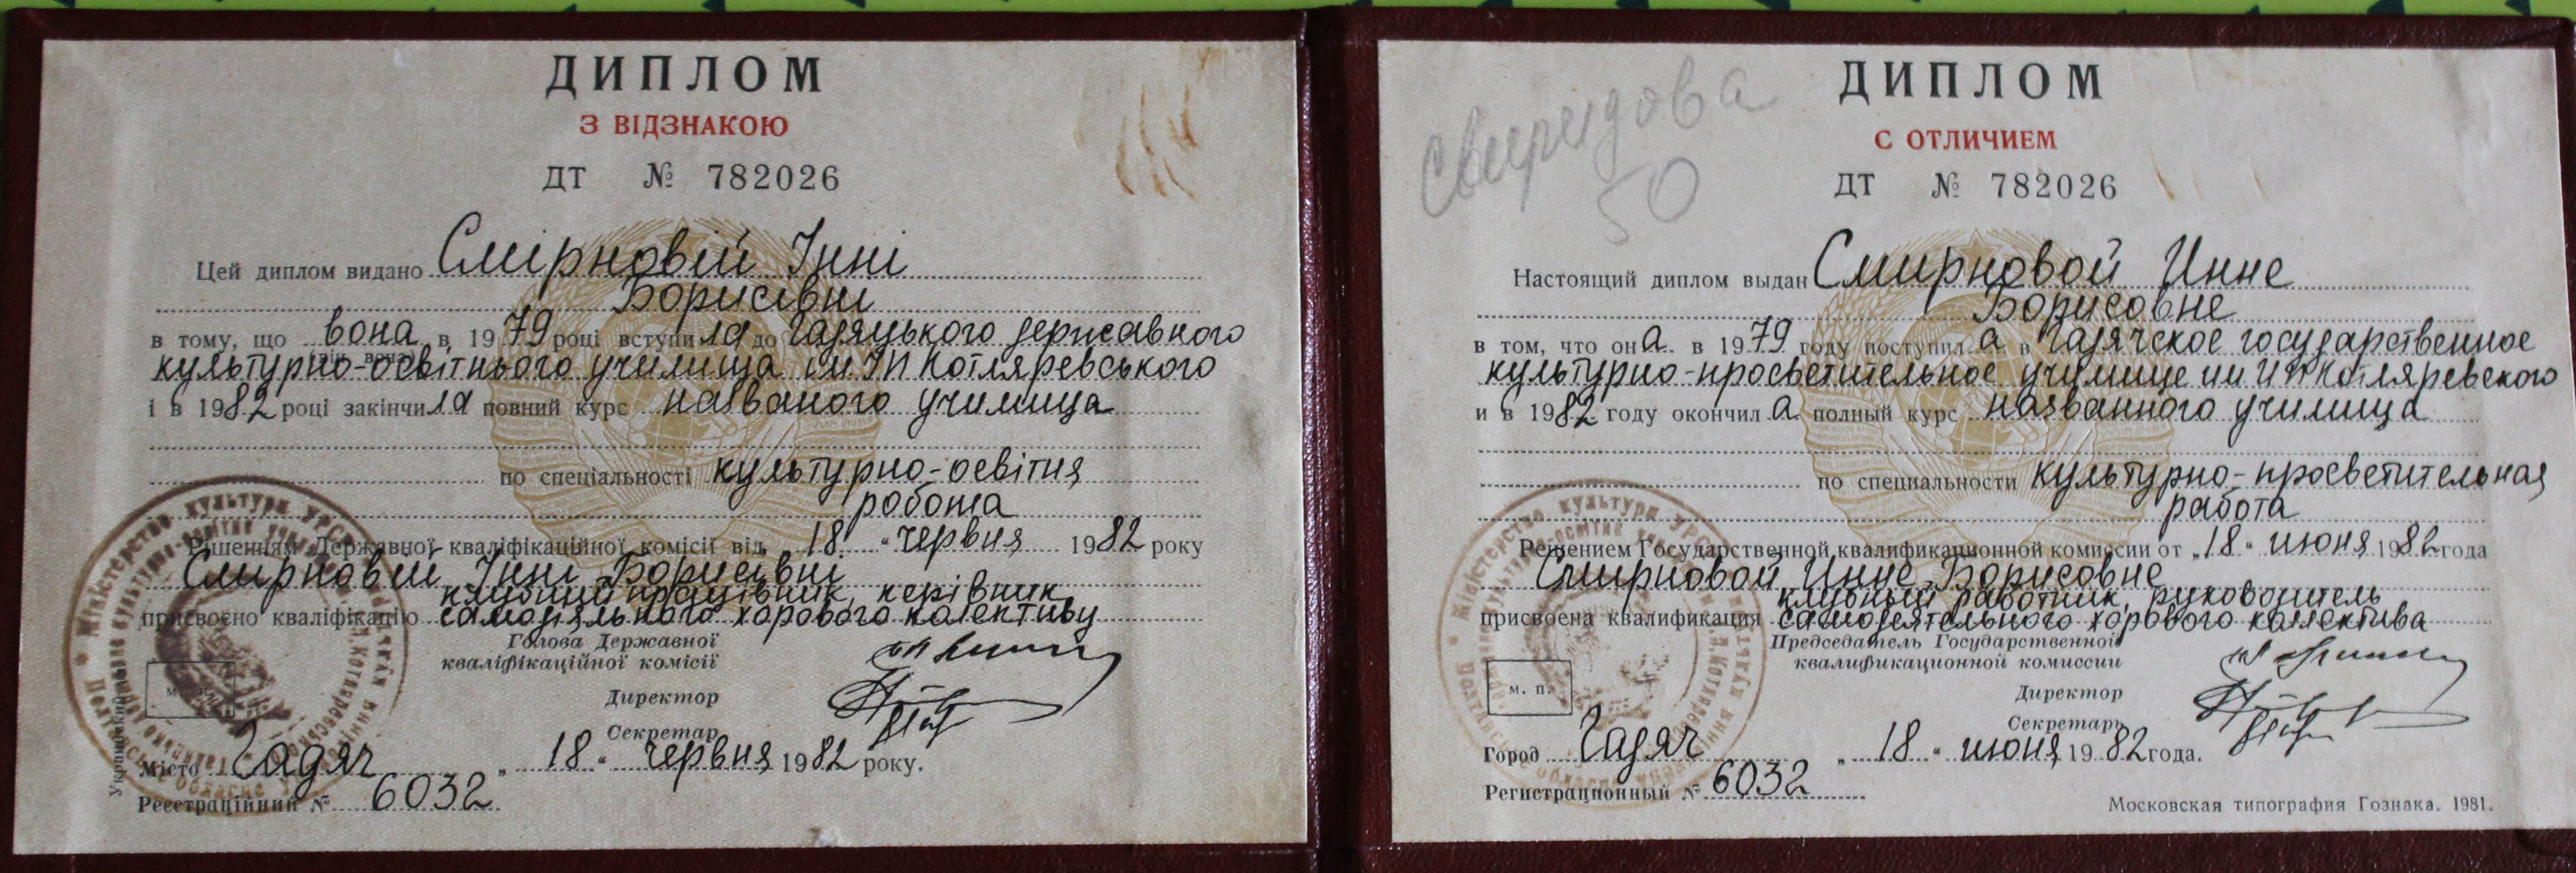 ДИПЛОМ
З ВІДЗНАКОЮ
ДТ № 782026
Цей диплом видано Смірновій Інні
Борисівні
в тому, що вона в 1979 році вступила до Гадяцького державного
культурно-освітнього училища ім ІП Котляревського
і в 1982 році закінчила повний курс названого училища
по спеціальності культурно-освітня
робота
Рішенням Державної кваліфікаційної комісії від „18“ червня 1982 року
Смирновій Інні Борисівні
клубний працівник, керівник
присвоєно кваліфікацію самодіяльного хорового колективу
Голова Державної
кваліфікаційної комісії
Директор
Секретар
Місто Гадяч „18“ червня 1982 року.
Реєстраційний № 6032
Свиридова
50
ДИПЛОМ
С ОТЛИЧИЕМ
ДТ № 782026
Настоящий диплом выдан Смирновой Инне
Борисовне
в том, что она в 1979 году поступила в Гадячское государственное
культурно-просветительное училище им ИП Котляревского
и в 1982 году окончила полный курс названного училища
по специальности культурно-просветительная
работа
Решением Государственной квалификационной комиссии от „18“ июня 1982 года
Смирновой Инне Борисовне
клубный работник, руководитель
присвоена квалификация самодеятельного хорового коллектива
Председатель Государственной
квалификационной комиссии
Директор
Секретарь
м. п.
Город Гадяч „18“ июня 1982 года.
Регистрационный № 6032
Московская типография Гознака. 1981.